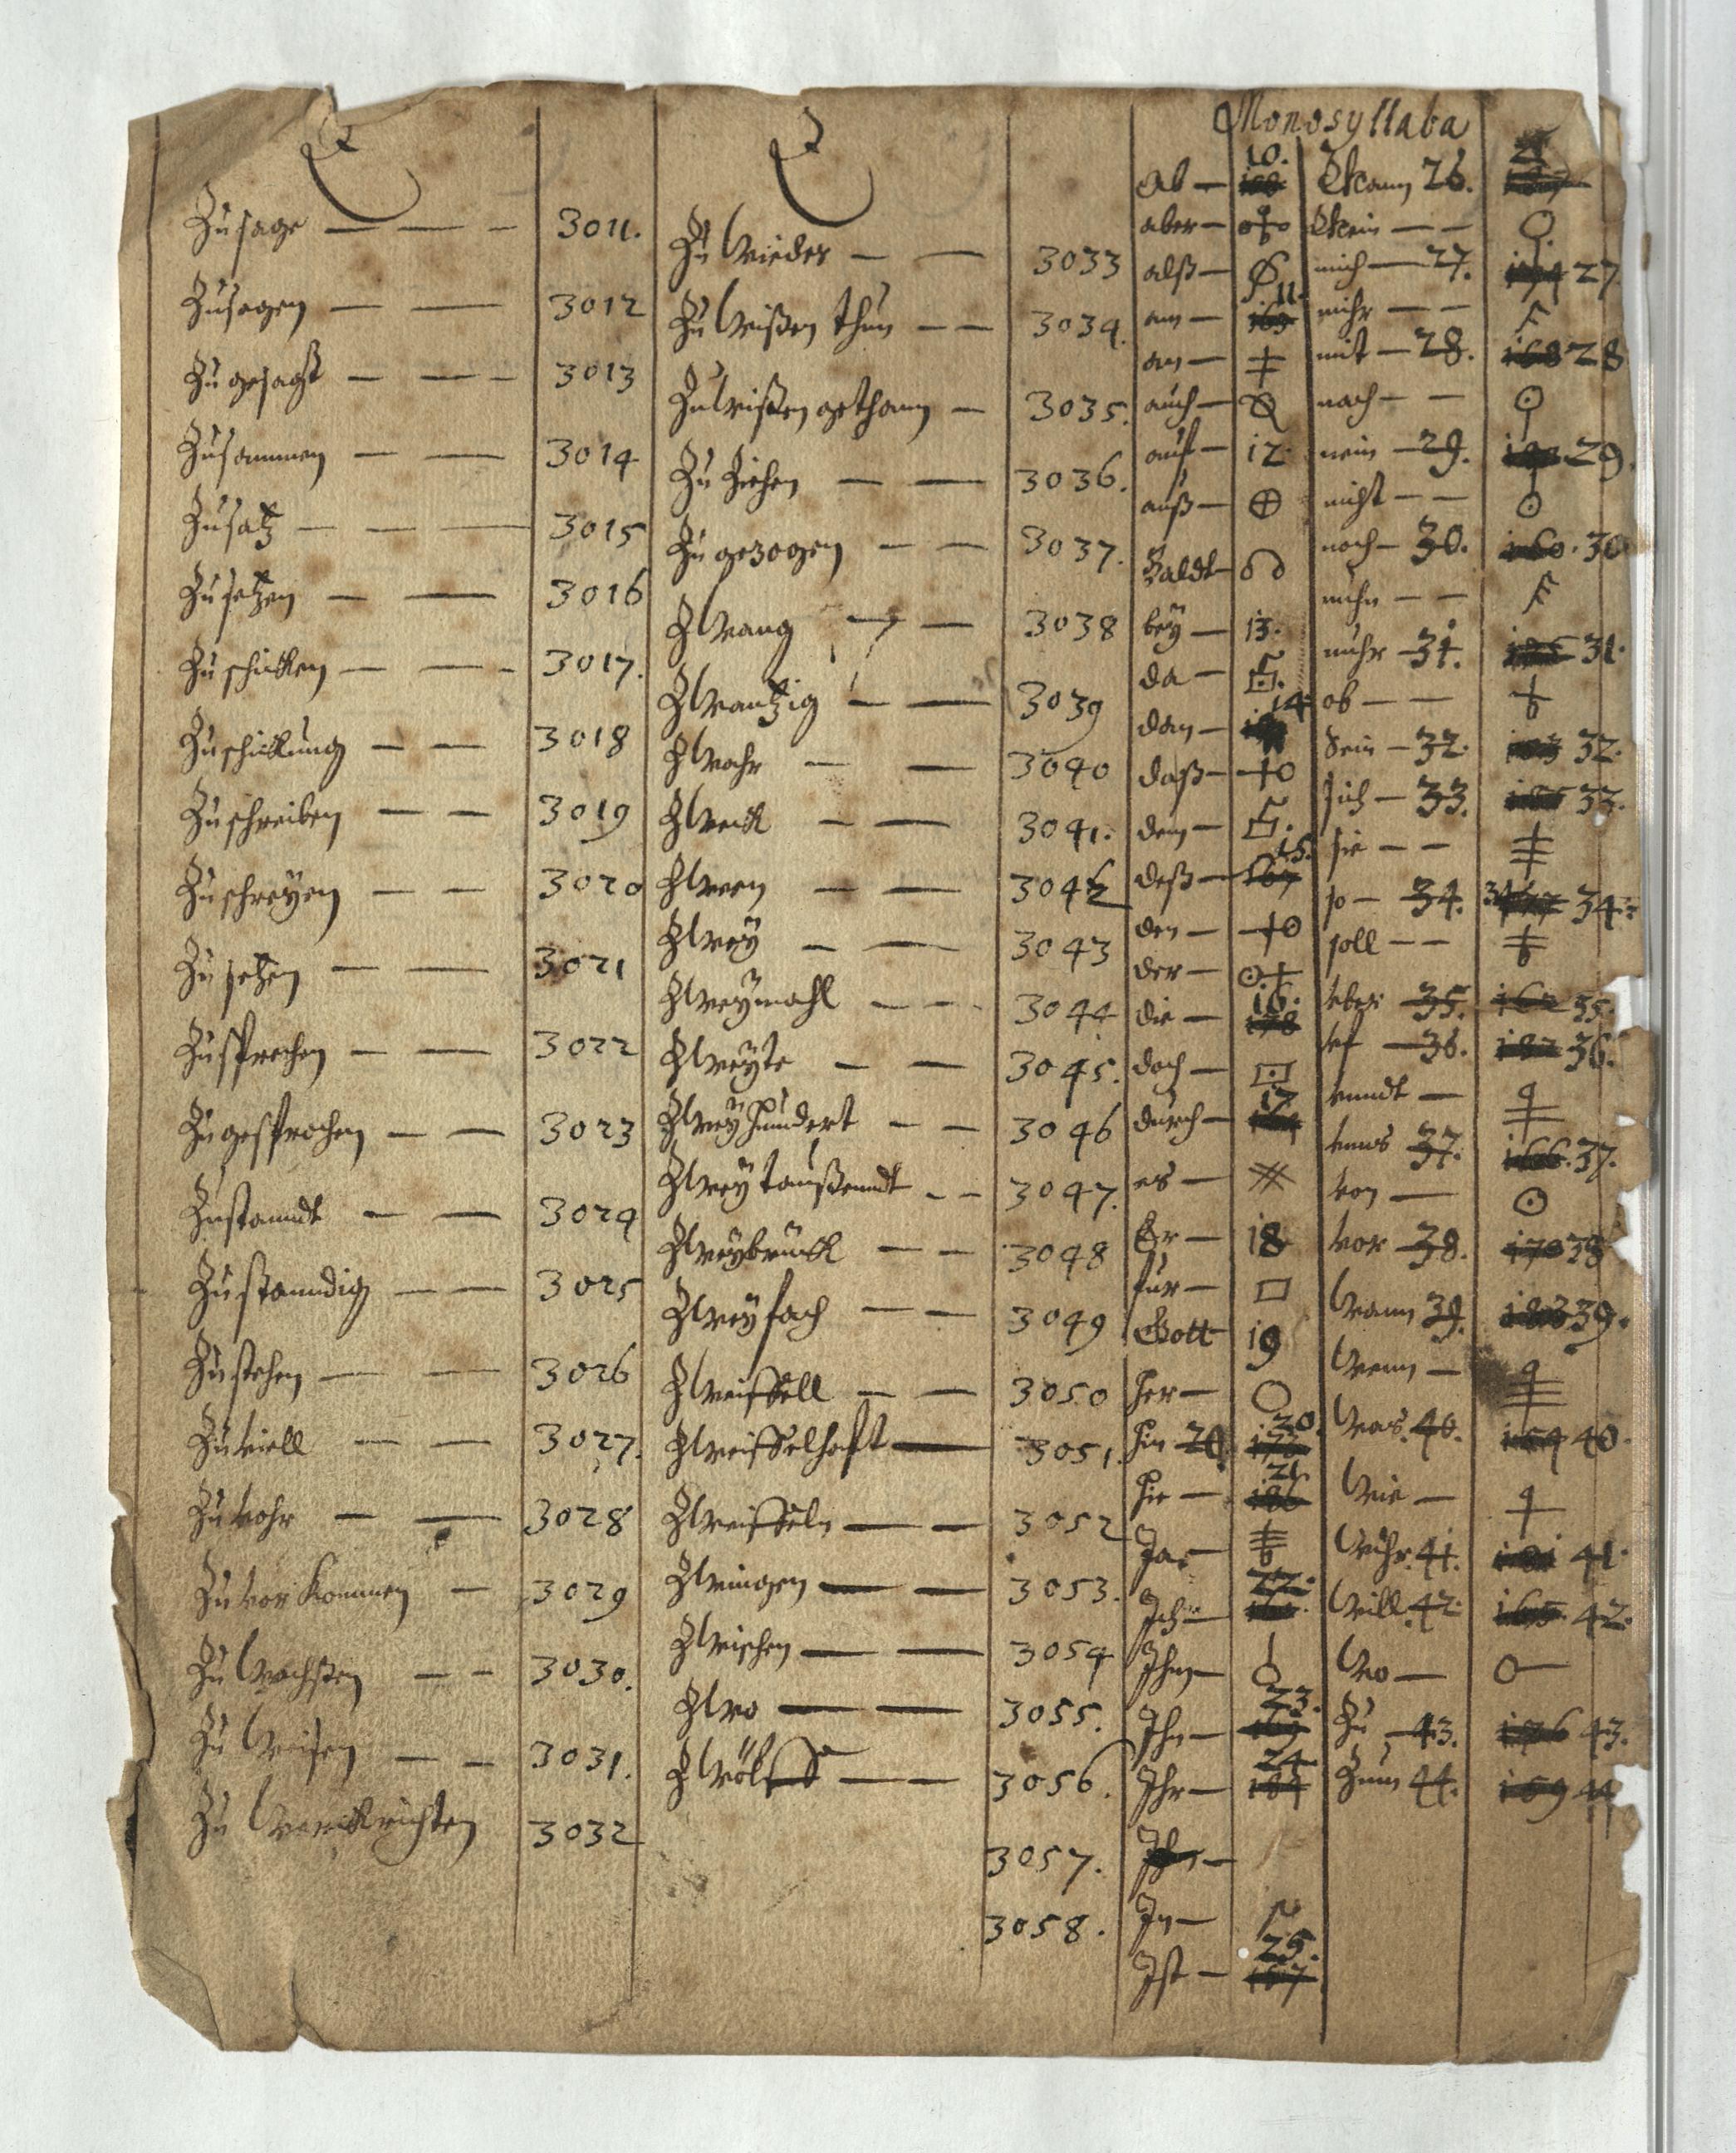 Z
Zusage — — - 3011.
Zusagen — — 3012
Zugesagt — — - 3013
Zusammen — — 3014
Zusatz — — — 3015
Zusetzen — — 3016
Zuschicken — — - 3017.
Zuschickung — — 3018
Zuschreiben — — 3019
Zuschreÿen — — 3020
Zusehen — — 3021
Zusprechen — — 3022
Zugesprochen — — 3023
Zustanndt — — 3024
Zustanndig — — 3025
Zustehen — — 3026
Zuviell — — 3027.
Zuvohr — — 3028
Zuvor Kommen — 3029
Zu Wachsten — — 3030.
Zu Weisen — — 3031.
Zu Werckrichten 3032
Z
Zu Wieder — — 3033
Zu Wißen thun — — 3034.
Zu Wißen gethann — 3035.
Zu Ziehen — — 3036.
Zu gezogen — — 3037.
Zwang — — 3038
Zwantzig — — 3039
Zwahr — — 3040
Zweck — — 3041.
Zween — — 3042
Zweÿ — — 3043
Zweÿmahl — — - 3044
Zweÿte — — 3045.
Zweÿhundert — — 3046
Zweÿtaußenndt - - 3047.
Zweÿbrück — — 3048
Zweÿfach — — 3049
Zweiffell — — 3050
Zweiffelhaft — 3051.
Zweiffeln — — 3052
Zwingen — — 3053.
Zwischen — — 3054
Zwo — — 3055.
Zwölff — — 3056.
3057.
3058.
Monosyllaba
ab — 10.
aber —
alß —
am — 11.
an —
auch —
auf — 12.
auß —
Baldt —
beÿ — 13.
da —
dan — 14.
daß —
dem —
deß — 15. 167
den —
der —
die — 16. 178
doch —
durch — 17
es —
Er — 18
für —
Gott 19
her —
hin 20. 20.
hie — 21. 186
Ja —
Ich — 22.
Ihm —
Ihn — 23. 169
Ihr — 24. 184
In —
Ist — 25.
Kann 26.
Kein — —
mich — 27. 27
mihr — —
mit — 28. 168 28
nach — —
nein — 29. 29.
nicht — —
noch — 30. 160. 30
nuhn — —
nuhr — 31. 31.
ob — —
Sein — 32. 32.
sich — 33. 33.
sie — —
so — 34. 34.
soll — —
vber 35. 162 35.
vf — 36. 182 36.
vnndt —
vnns 37. 166. 37.
von —
vor — 38. 170 38
Wann 39. 183 39.
Wenn —
Was. 40. 40.
Wie —
Wihr. 41. 181 41.
Will. 42. 165. 42.
Wo —
Zu — 43. 43.
Zum 44. 159 44